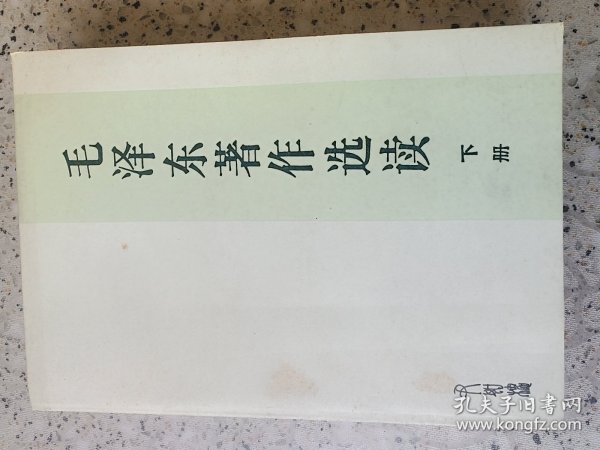 毛泽东著作选读
下册
人民出版社
孔夫子旧书网
www.kongfz.com